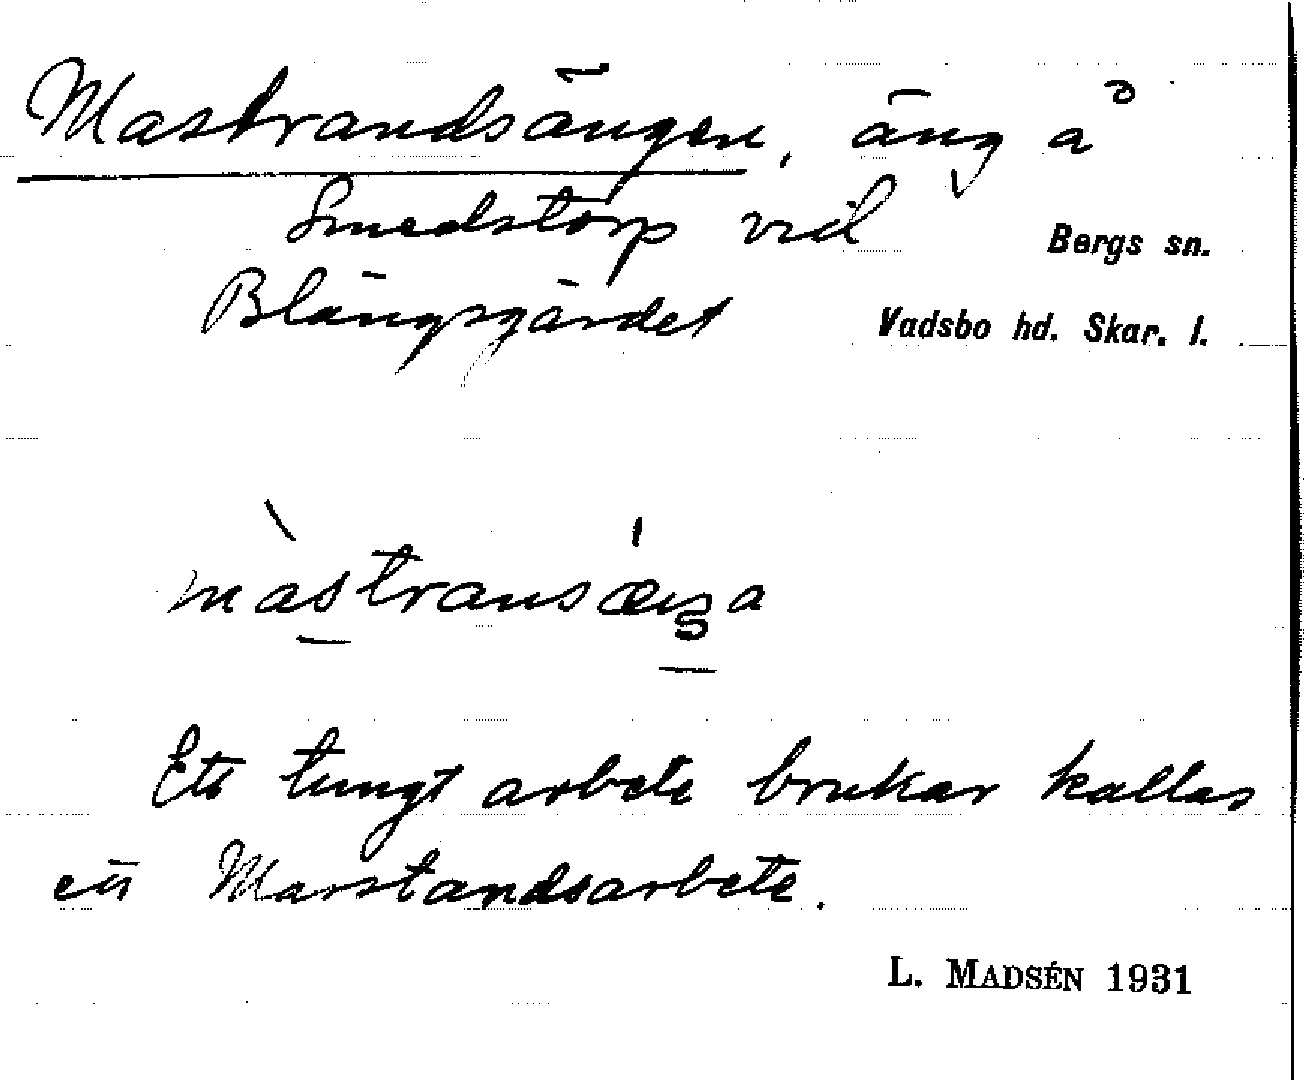 Mastrandsängen, äng å
Smedstorp vid
Bergs sn.
Blängsgärdet
Vadsbo hd. Skar. l.
Ett tungt arbete brukar kallas
ett Marstandsarbete.
L. MADSÉN 1931